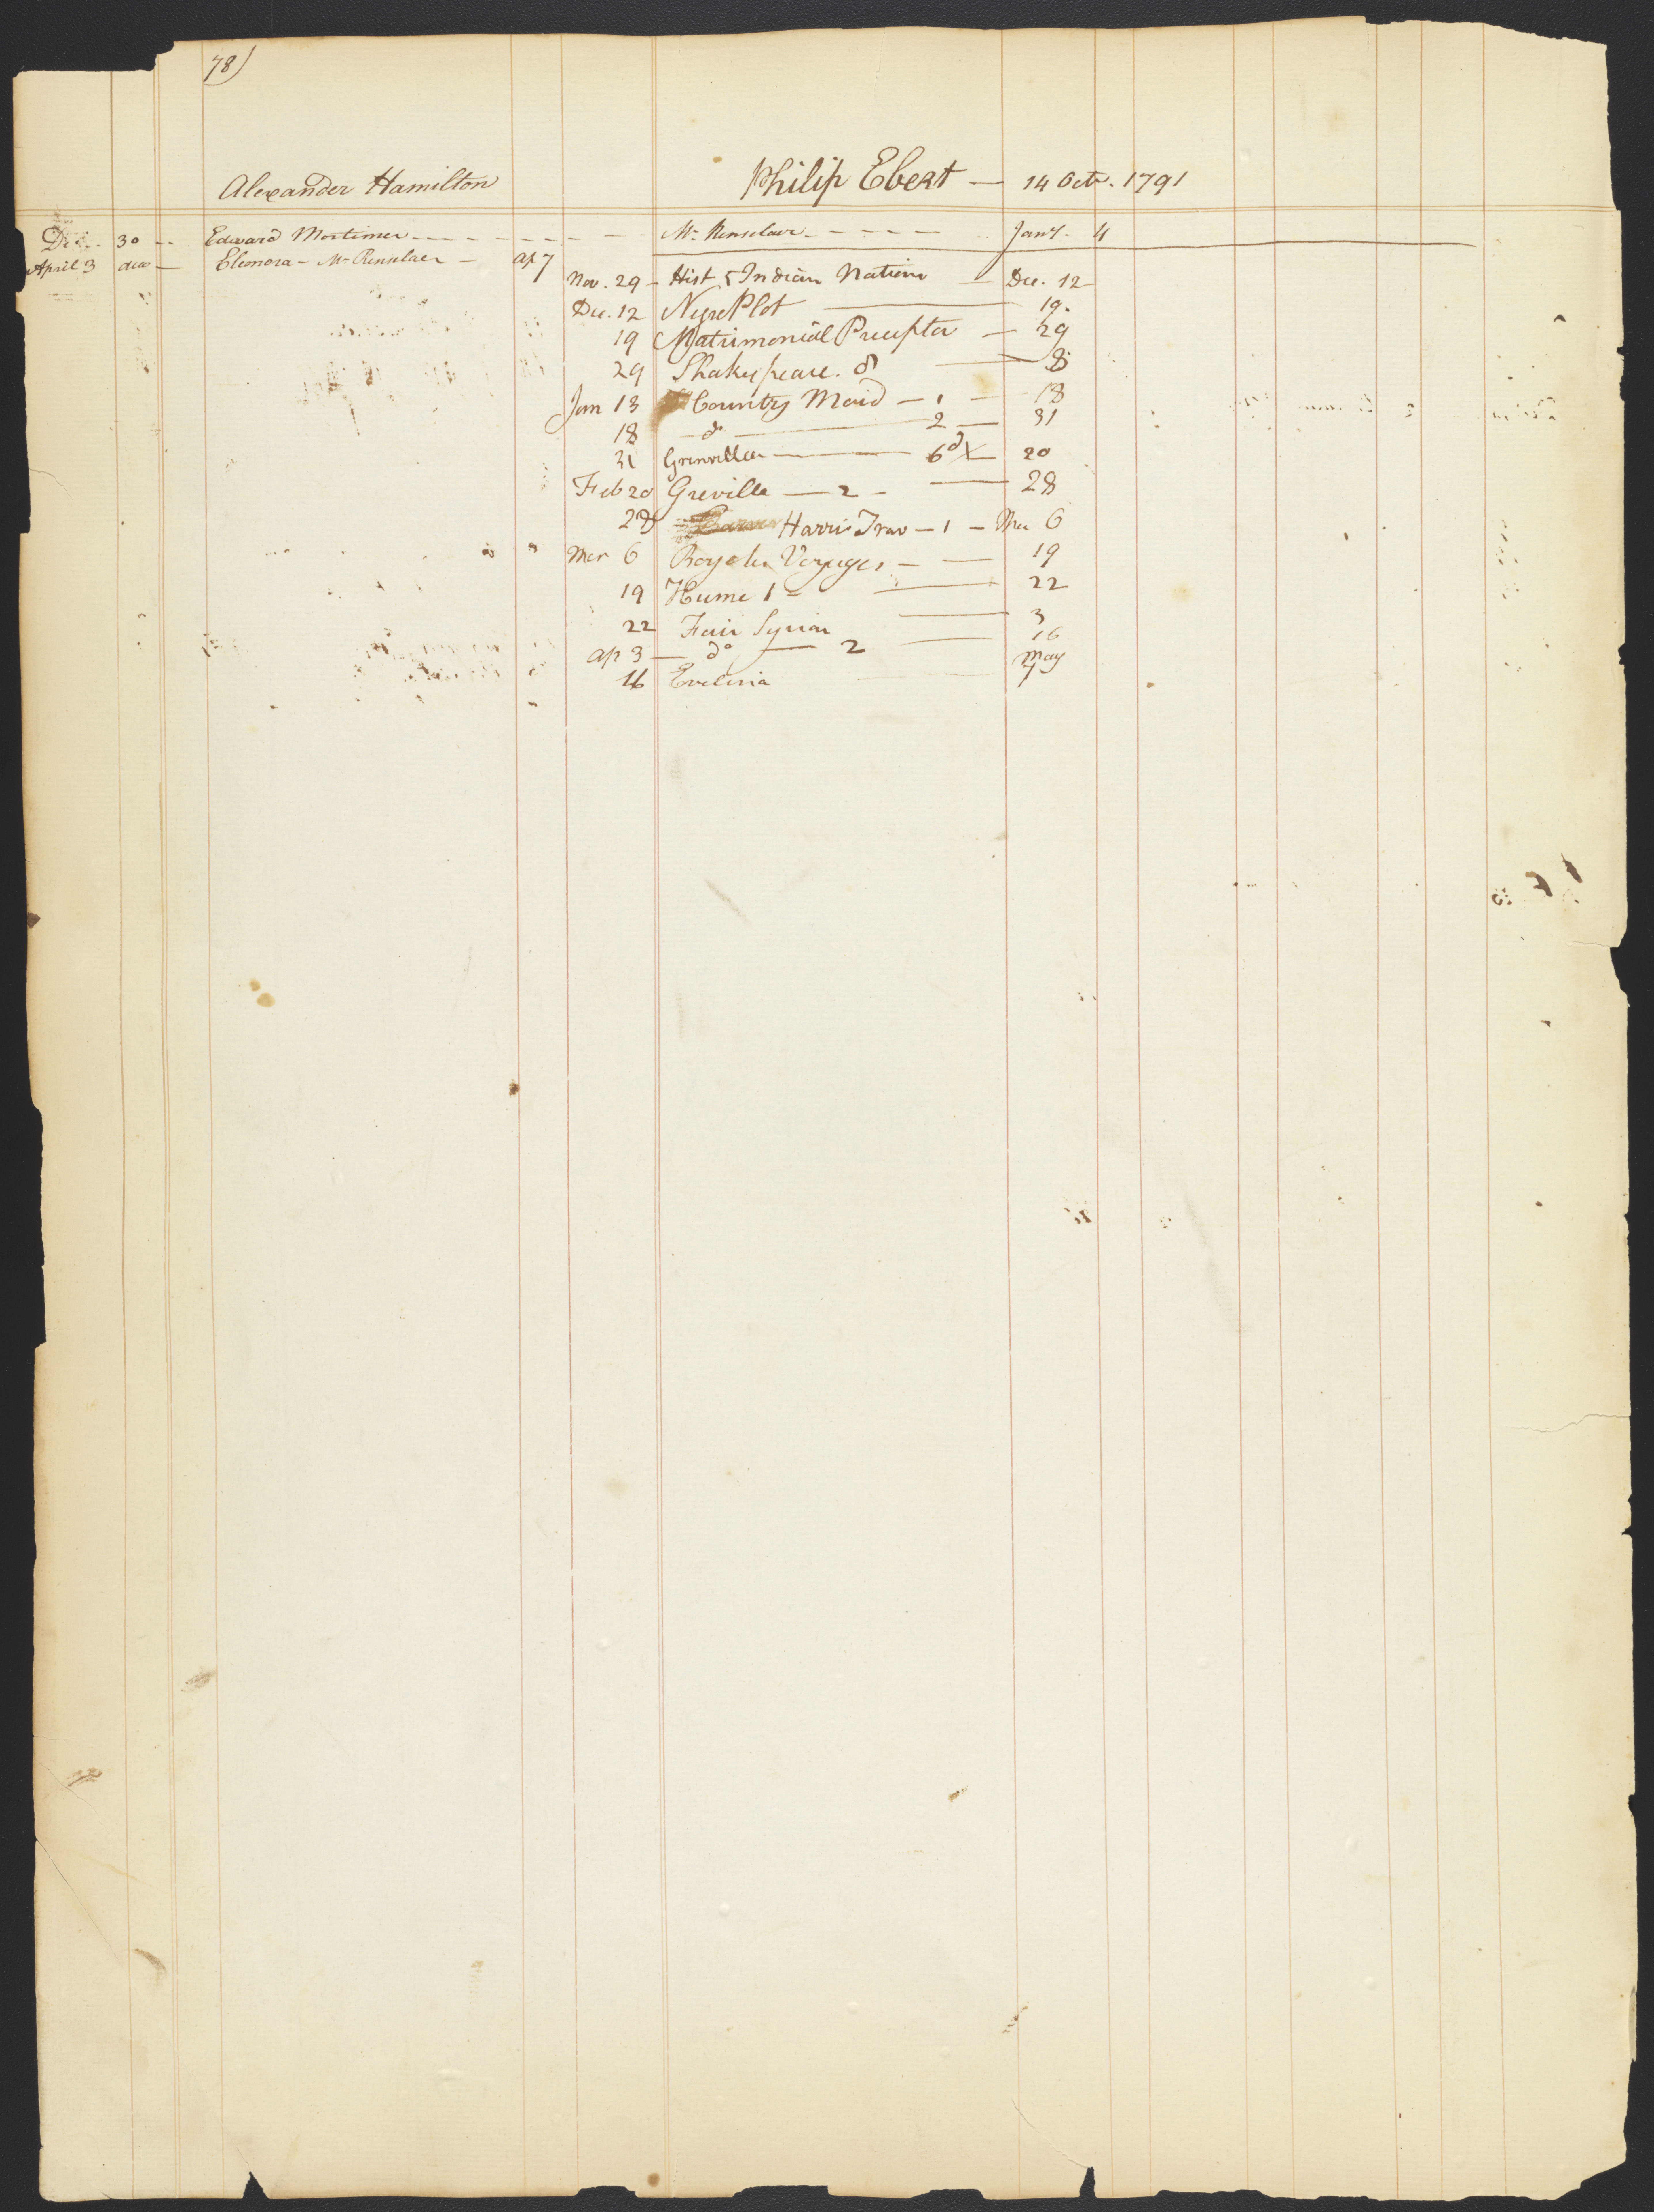 78)
Alexander Hamilton
Dec. 30 Edward Mortimer Mr Renselaer Jany. 4
April 3 Eleonora - Mr Renselaer - ap 7
Philip Ebert - 14 Octr. 1791
Nov. 29 - Hist 5 Indian Nations - Dec. 12
Dec. 12 Plot - 19.
19 Matrimonial Preceptor - 29
29 Shakespeare. 8 - 8
Jan 13 Country Maid - 1 - 18
18 - do - 2 - 31
31 Grenville - 6d 20
Feb 20 Greville - 2 - 28
28 Harris Trav - 1 - Mar 6
Mar 6 Voyages - 19
19 Hume 1 - 22
22 Fair Syrian - 3
ap 3 - do - 2 - 16
16 Evelina May 7